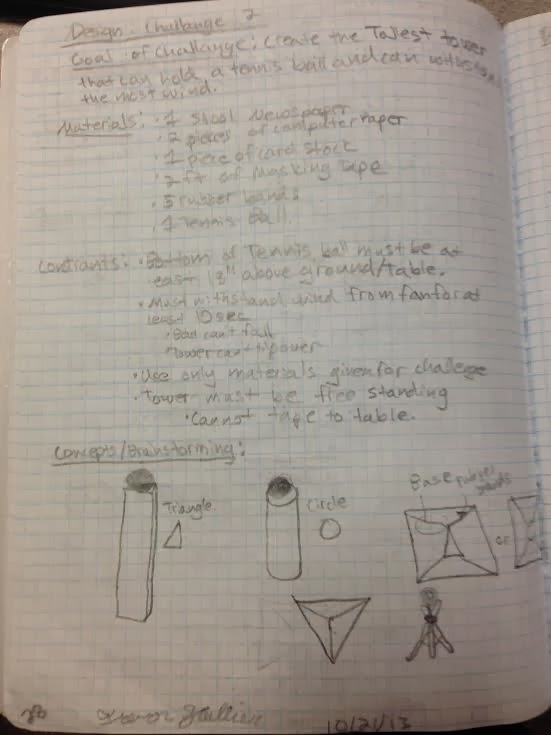 Design Challange 2
Goal of Challange: Create the Tallest tower
that can hold a tennis ball and can withstand
the most wind.
Materials: • 1 Stool Newspaper
• 2 pieces of computer Paper
• 1 piece of card stock
• 2 ft of Masking Tape
• 5 rubber bands
• 1 Tennis Ball
Contriants: • Bottom of Tennis ball must be at
least 18" above ground/table.
• Must withstand wind from fan for at
least 10 sec
• Ball can't fall
• Tower can't tip over
• Use only materials given for challege
• Tower must be free standing
• Cannot tape to table.
Concepts/Brainstorming:
Triangle
Circle
Base
or
10/21/13